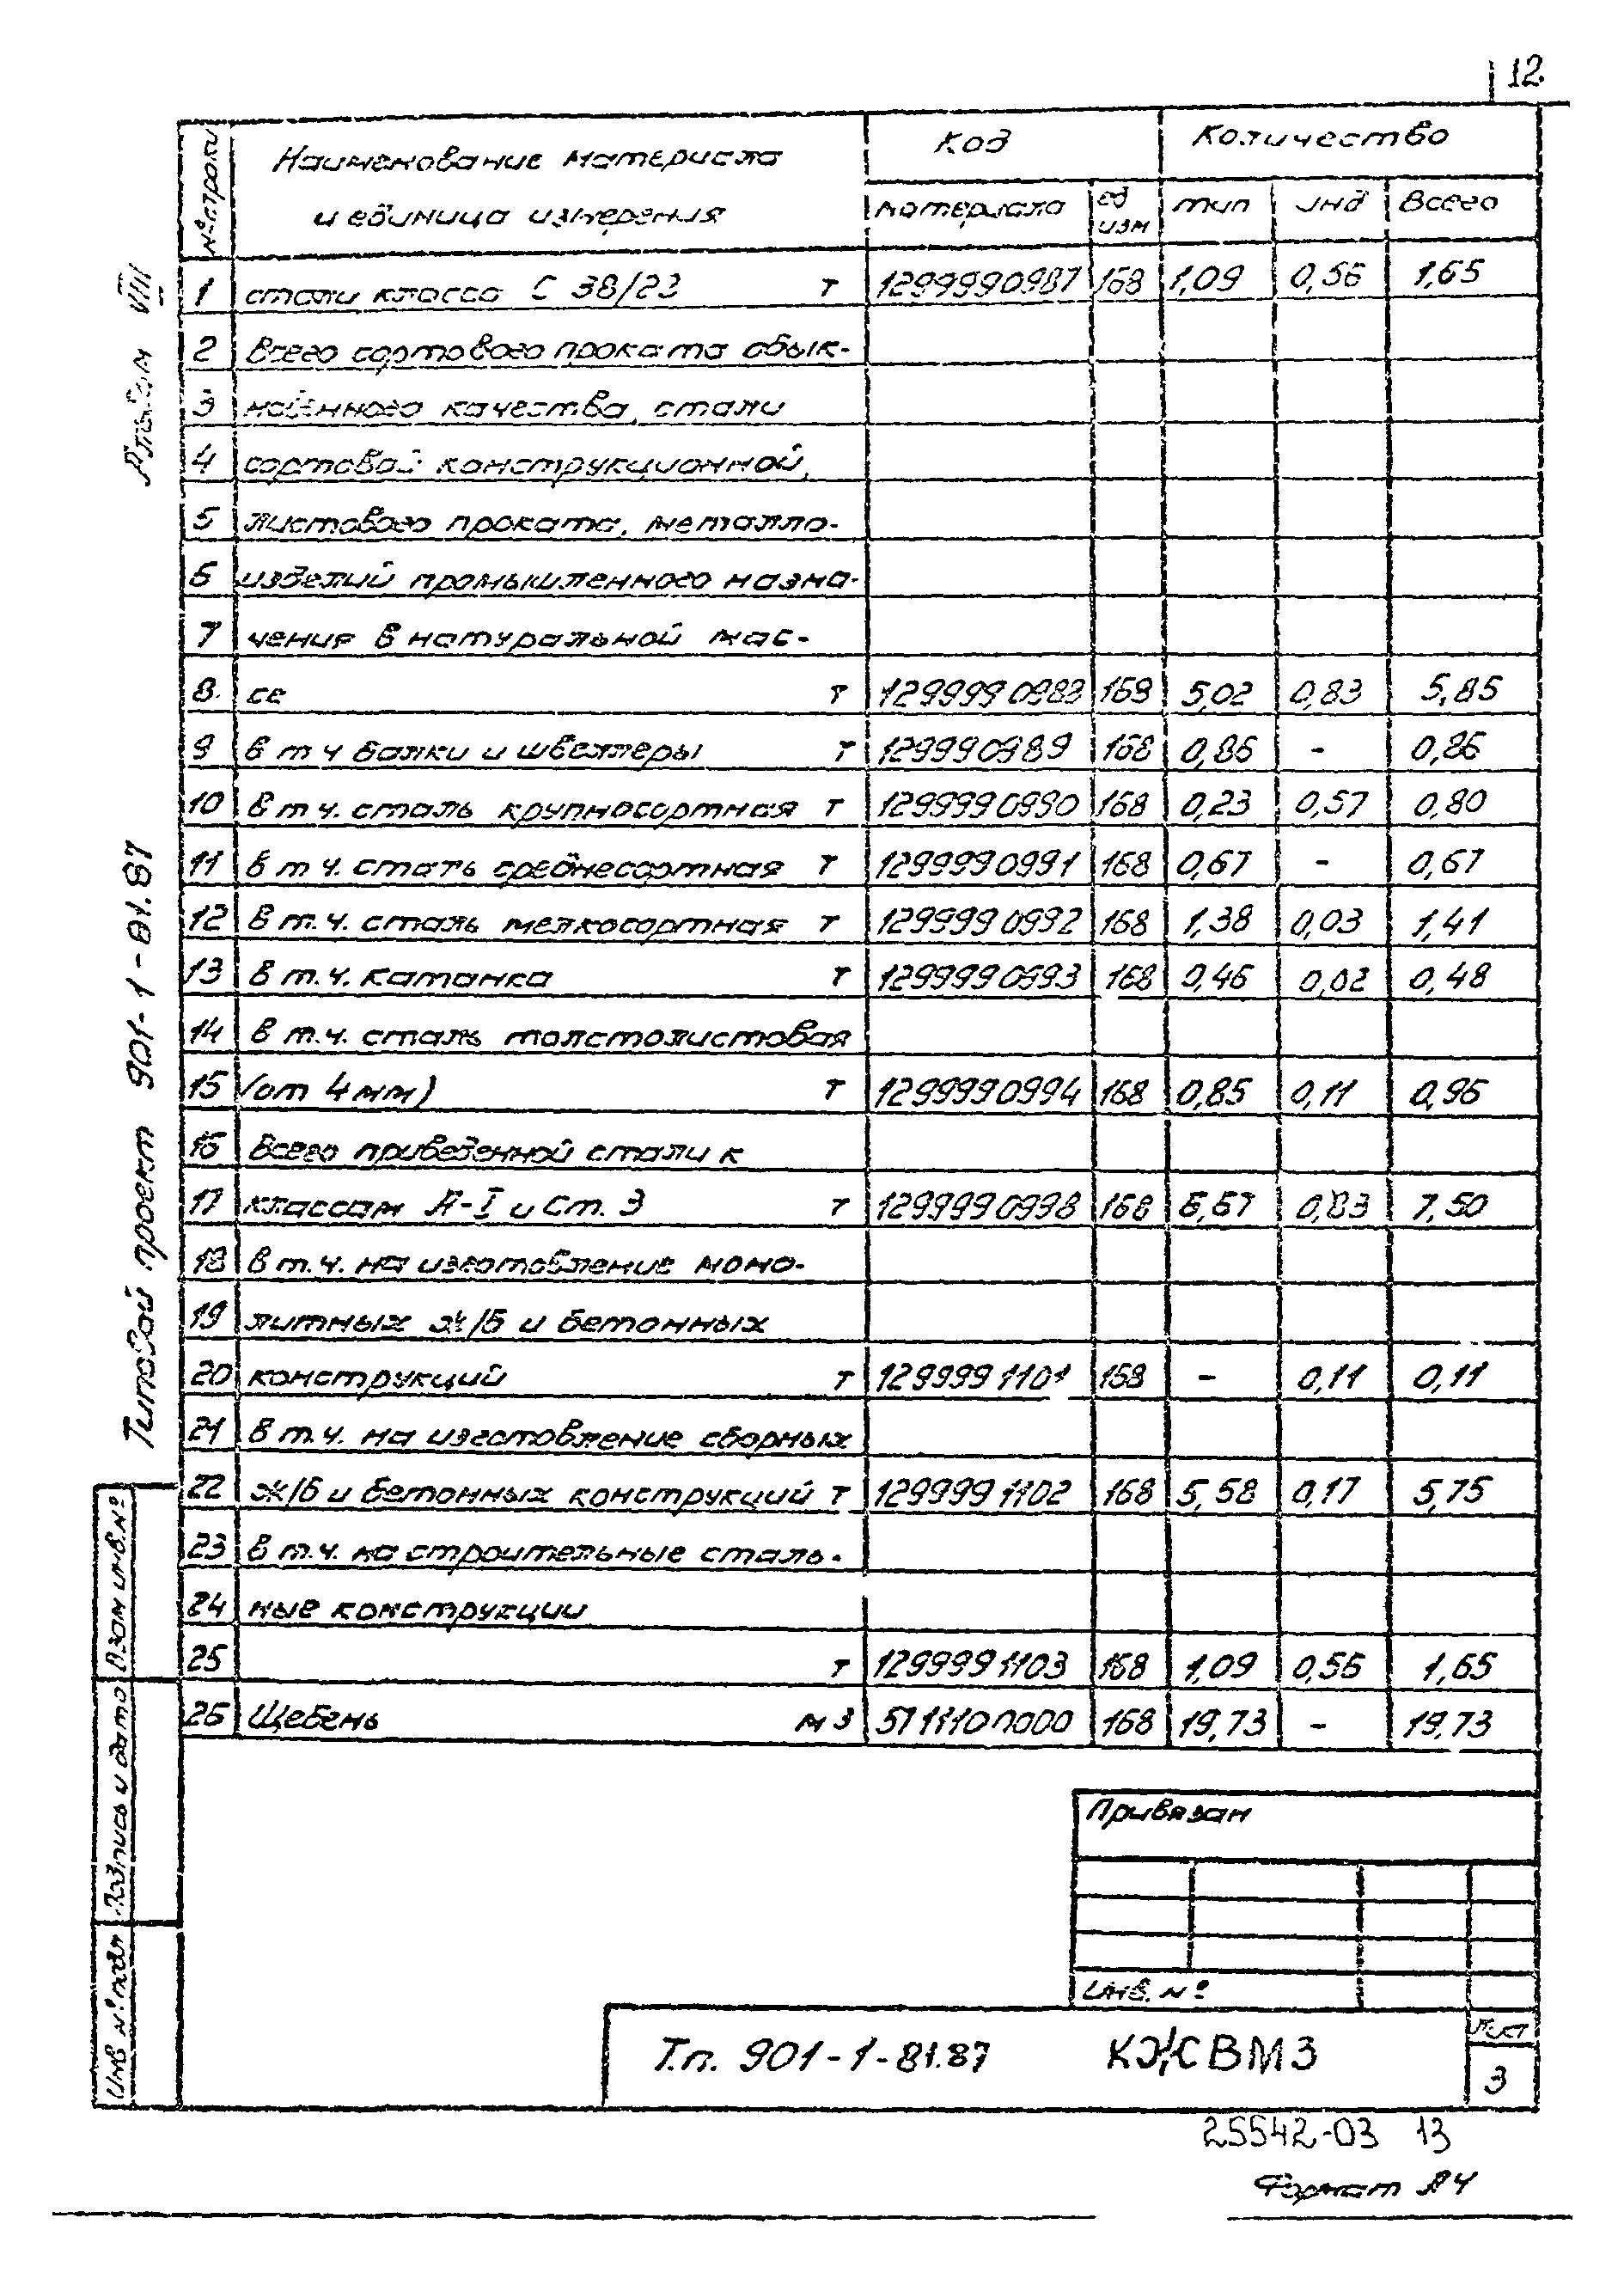 12
№ строки
Наименование материала
и единица измерения
Код
Количество
материала
ед изм
тип
инд
Всего
1 стали класса С 38/23 т 1299990987 168 1,09 0,56 1,65
2 Всего сортового проката обык-
3 новенного качества, стали
4 сортовой конструкционной,
5 листового проката, металло-
6 изделий промышленного назна-
7 чения в натуральной мас-
8. се т 1299990988 168 5,02 0,83 5,85
9 в т ч балки и швеллеры т 129990989 168 0,86 - 0,86
10 в т ч. сталь крупносортная т 1299990990 168 0,23 0,57 0,80
11 в т ч. сталь среднесортная т 1299990991 168 0,67 - 0,67
12 в т.ч. сталь мелкосортная т 1299990992 168 1,38 0,03 1,41
13 в т.ч. катанка т 1299990993 168 0,46 0,02 0,48
14 в т.ч. сталь толстолистовая
15 (от 4 мм) т 1299990994 168 0,85 0,11 0,96
16 Всего приведенной стали к
17 классам А-I и Ст. 3 т 1299990998 168 6,67 0,83 7,50
18 в т.ч. на изготовление моно-
19 литных ж/б и бетонных
20 конструкций т 1299991101 168 - 0,11 0,11
21 в т.ч. на изготовление сборных
22 ж/б и бетонных конструкций т 1299991102 168 5,58 0,17 5,75
23 в т.ч. на строительные сталь-
24 ные конструкции
25 т 1299991103 168 1,09 0,56 1,65
26 Щебень м3 5711100000 168 19,73 - 19,73
Альбом VIII
Типовой проект 901-1-81.87
Взам инв.№
Подпись и дата
Инв № подл
Привязан
Инв. №
Т.п. 901-1-81.87 КЖВМ3
Лист
3
25542-03 13
Формат А4